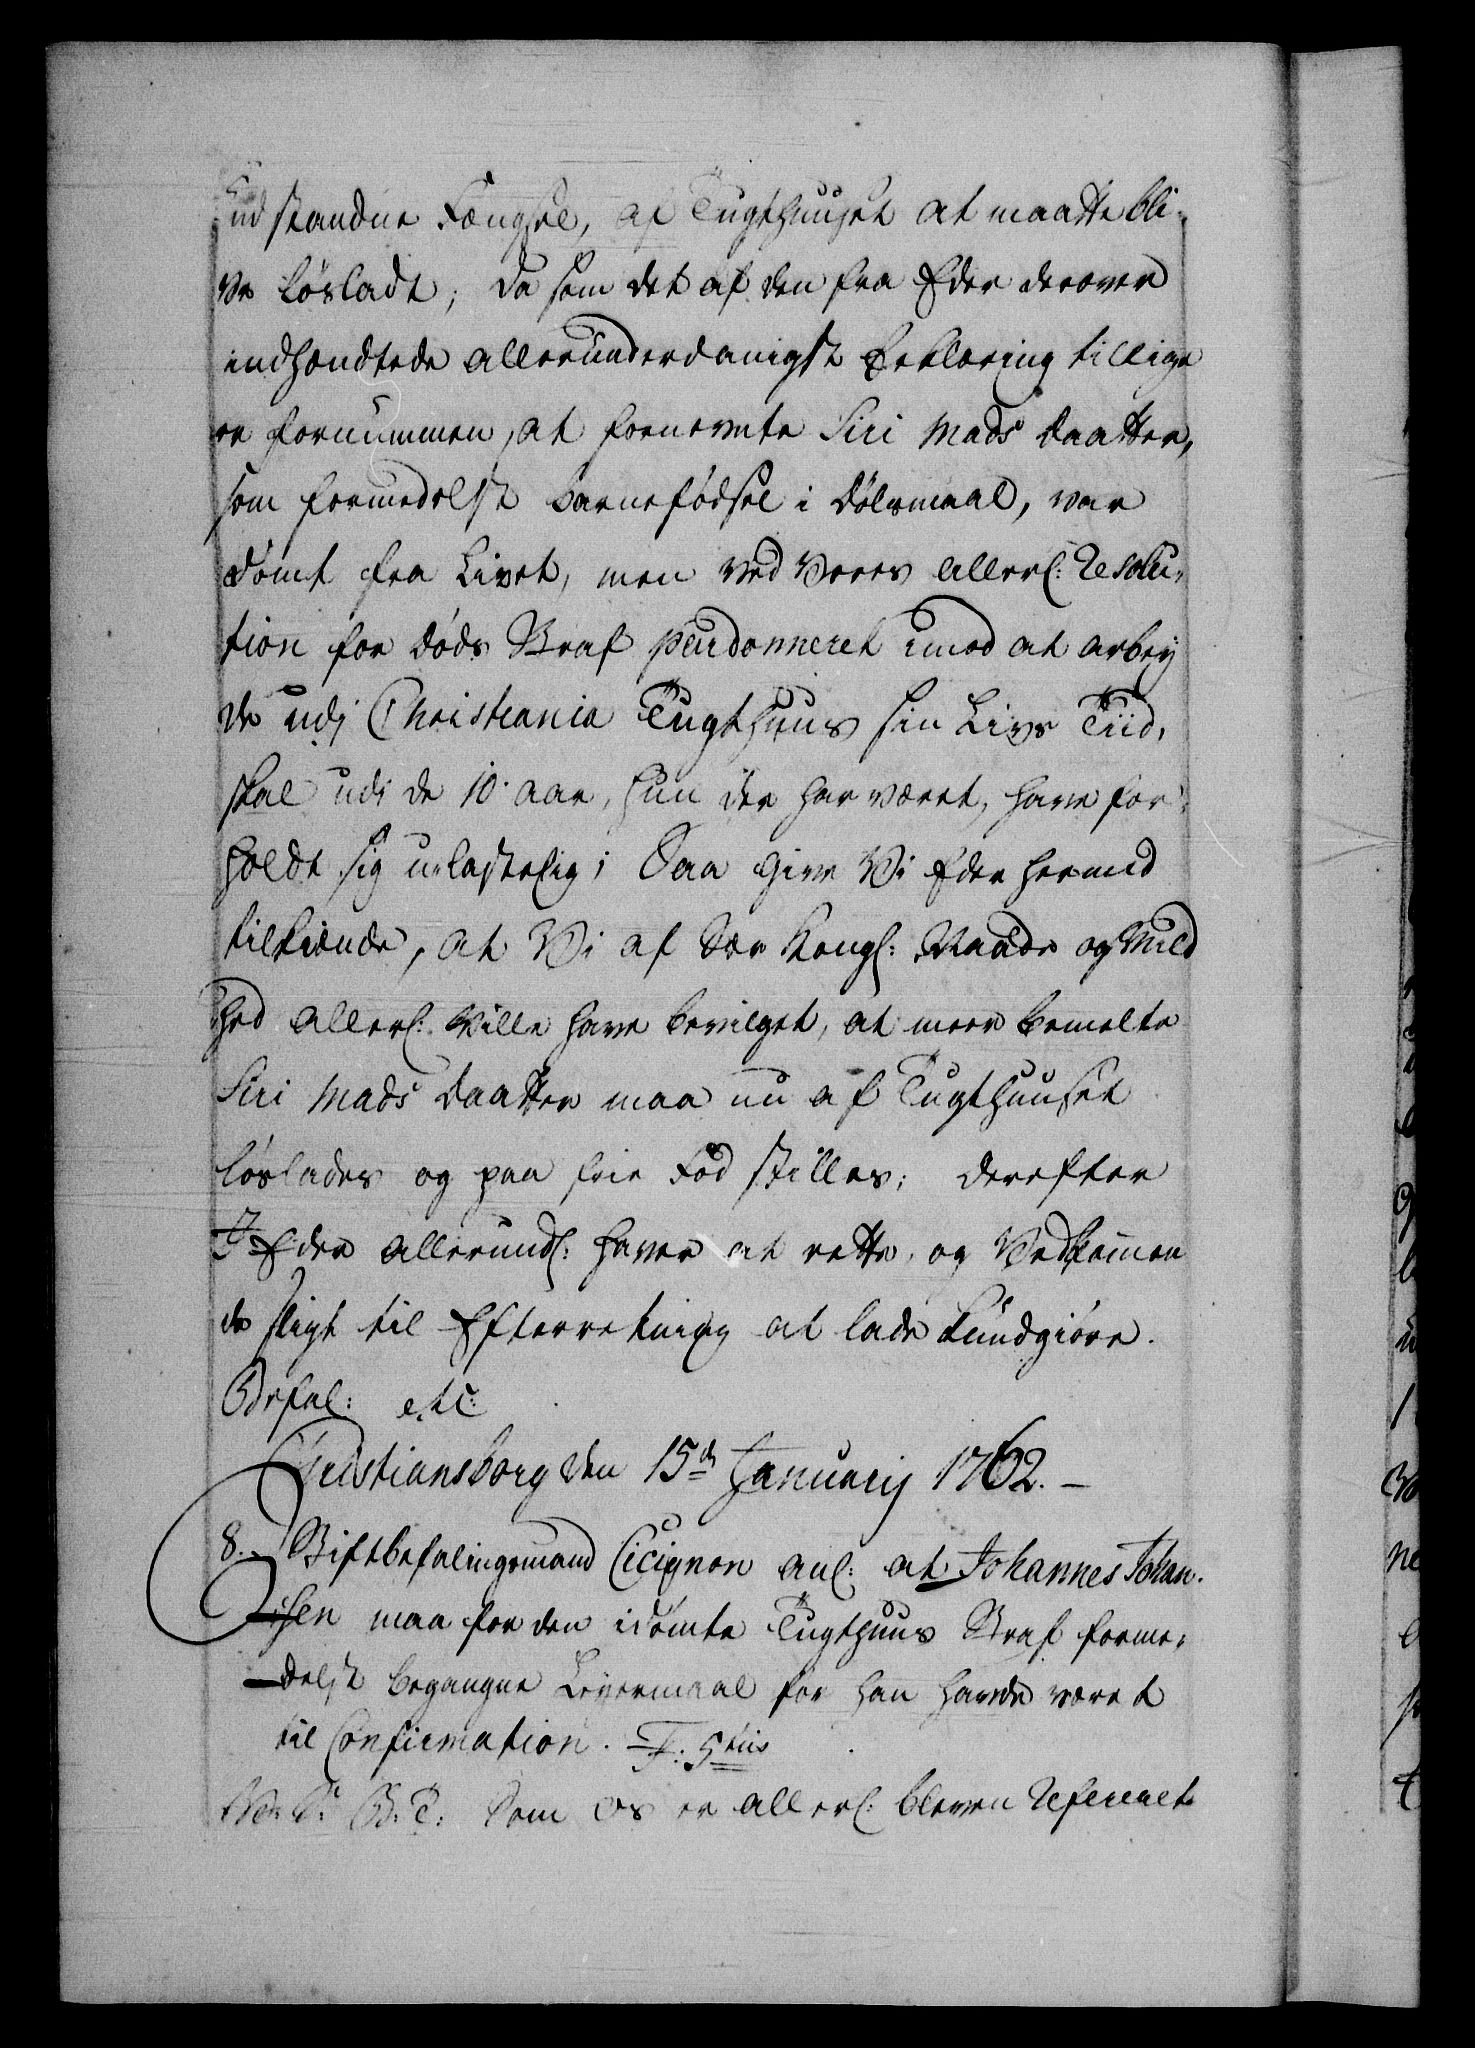 udstandne Fængsel, af Tugthuuset at maatte bli-
ve løsladt; Da som det af den fra Eder derover
indhændtede allerunderdanigst Erklæring tillige
er fornummen, at fornevnte Siri Mads Daatter,
som formedelst Barnefødsel i Dølsmaal, var
dømt fra Livet, men ved Vores allerl: Resolu-
tion for Døds Straf pardonneret imod at arbey
de udj Christiania Tugthuus sin Livs Tiid,
skal udi de 10. aar, hun der har været, have for-
holdt sig ulastelig; Saa give Vi Eder hermed
tilkiende, at Vi af Sær Kongl: Naade og Mild
hed allerl: Ville have bevilget, at meer bemelte
Siri Mads Daatter maa nu af Tugthuuset
løslades og paa frie Fod stilles; Derefter
I Eder allerundl: haver at rette, og Vedkommen
de sligt til Efterretning at lade kundgiøre.
Befal: etc:
Christiansborg den 15de Januarij 1762. –
8. Stiftbefalingsmand Cicignon anl: at Johannes Johan-
sen maa for den idømte Tugthuus Straf forme-
delst begangne Leyermaal før han havde været
til Confirmation. F: 5tiis
C: B: T: Som Os er allerl: bleven Refereret